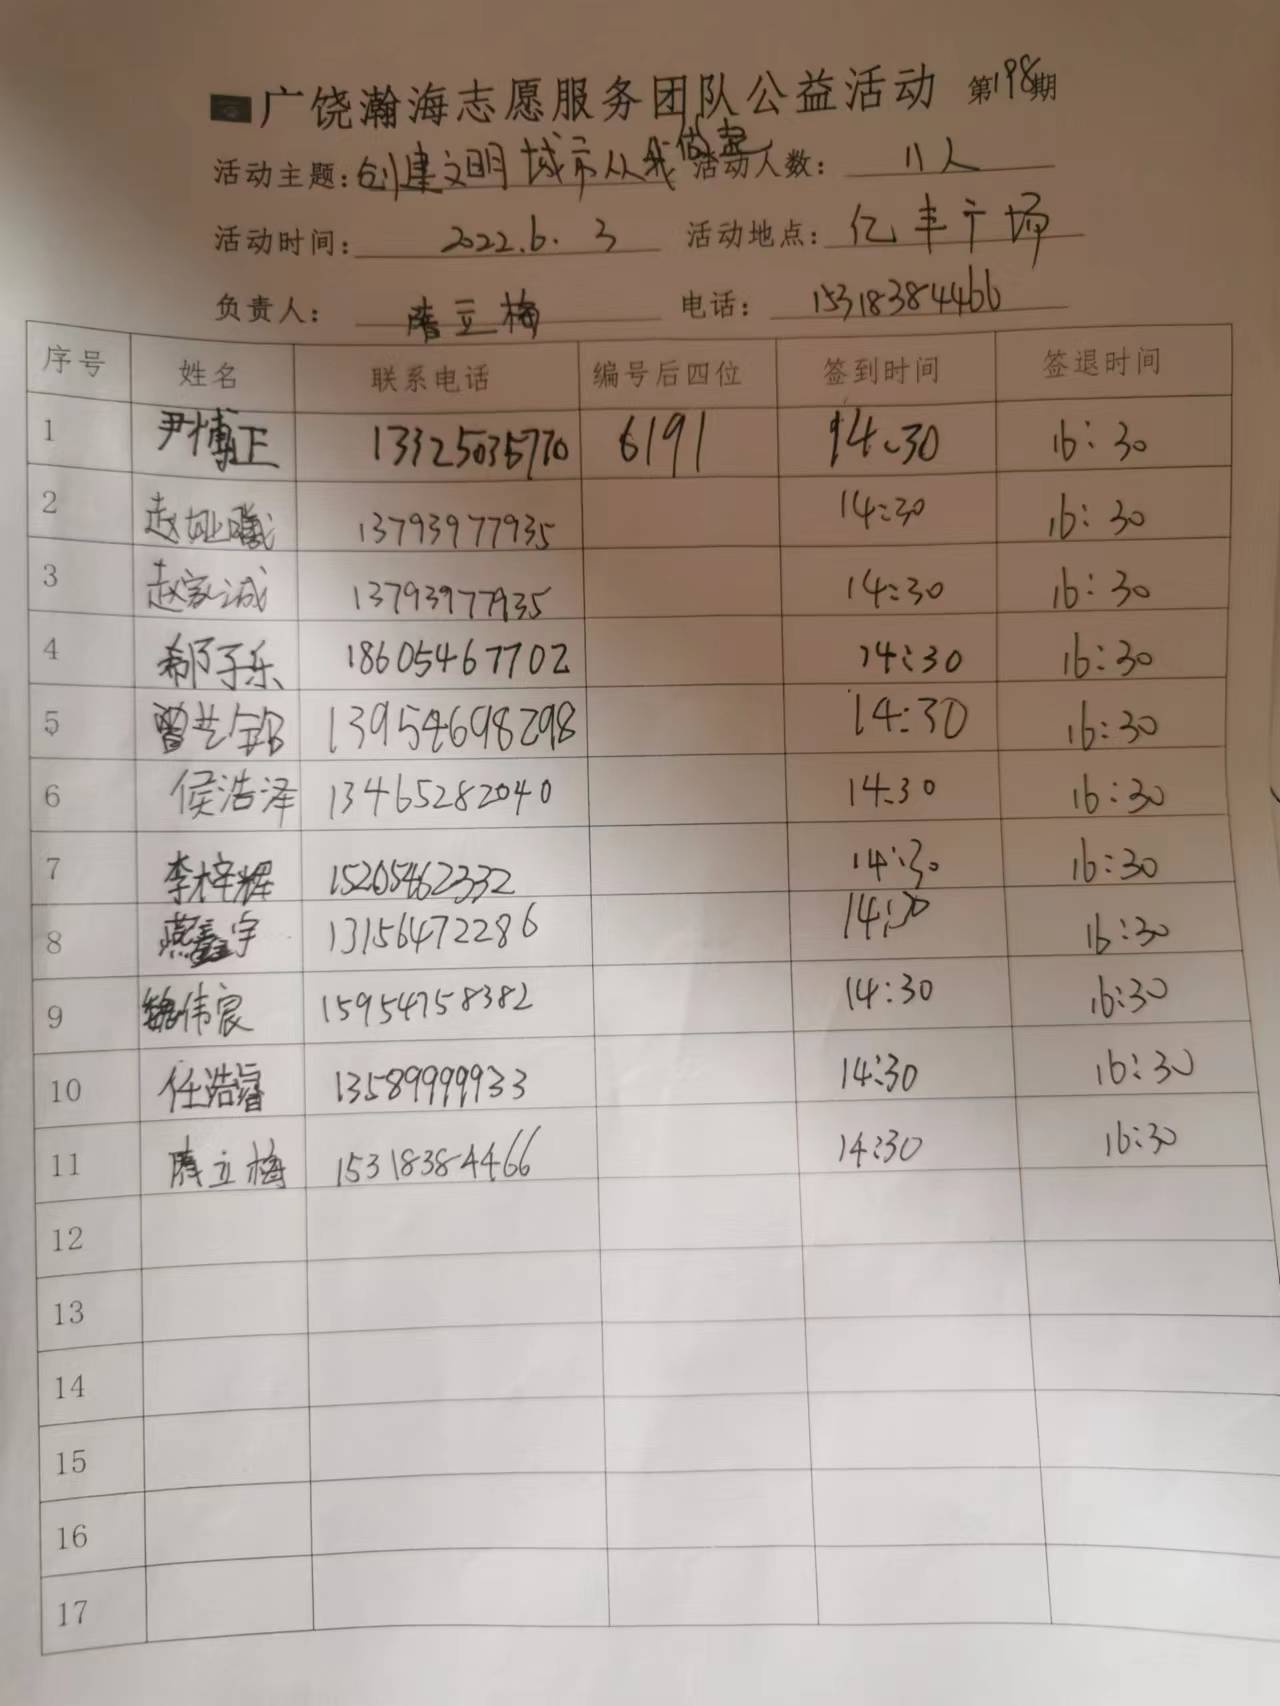 广饶瀚海志愿服务团队公益活动 第198期
活动主题:创建文明城市从我做起 活动人数: 11人
活动时间: 2022.6.3 活动地点: 亿丰广场
负责人: 隋立梅 电话: 15318384466
序号 姓名 联系电话 编号后四位 签到时间 签退时间
1 尹博正 13325035770 6191 14:30 16:30
2 赵 曦 13793977935 14:30 16:30
3 赵家诚 13793977935 14:30 16:30
4 郗子乐 18605467702 14:30 16:30
5 曾 13954698298 14:30 16:30
6 侯浩泽 13465282040 14:30 16:30
7 李梓辉 15205462332 14:30 16:30
8 燕鑫宇 13156472286 16:30
9 魏伟宸 15954758382 14:30 16:30
10 任浩睿 13589999933 14:30 16:30
11 隋立梅 15318384466 14:30 16:30
12
13
14
15
16
17